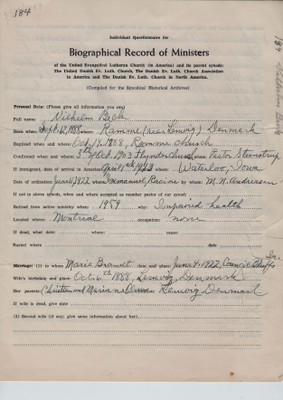 184
184
Individual Questionnaire for
Biographical Record of Ministers
of the United Evangelical Lutheran Church (in America) and its parent synods:
The United Danish Ev. Luth. Church, The Danish Ev. Luth. Church Association
in America and The Danish Ev. Luth. Church in North America.
(Compiled for the Synodical Historical Archives)
Personal Data: (Please give all information you can)
Full name: Vilhelm Beck
Born when: Sept. 12, 1888 where: Ramme (near Lemvig) Denmark
Baptized when and where: Oct. 17, 1888, Ramme church
Confirmed when and where: 3th of Oct. 1903 by whom: Pastor
If immigrated, date of arrival in America: where: Waterloo, Iowa
Date of ordination: June 11, 1922 where: Racine by whom: M. N. Andreasen
If not so above synods, when and where accepted as member pastor of our synod:
Retired from active ministry when: 1959 why: Impaired health
Located where: Montreal occupation: none
If dead, what date: where: cause:
Buried where date
Marriage: (1) to whom: Marie date and where: June 1922, Council Bluffs Ia.
Wife's birthdate and place: Oct. 1888, Lemvig, Denmark
Her parents: Christen and Mariane Lemvig Denmark
If wife is dead, give date
(2) Second wife (if any) give same information about her).